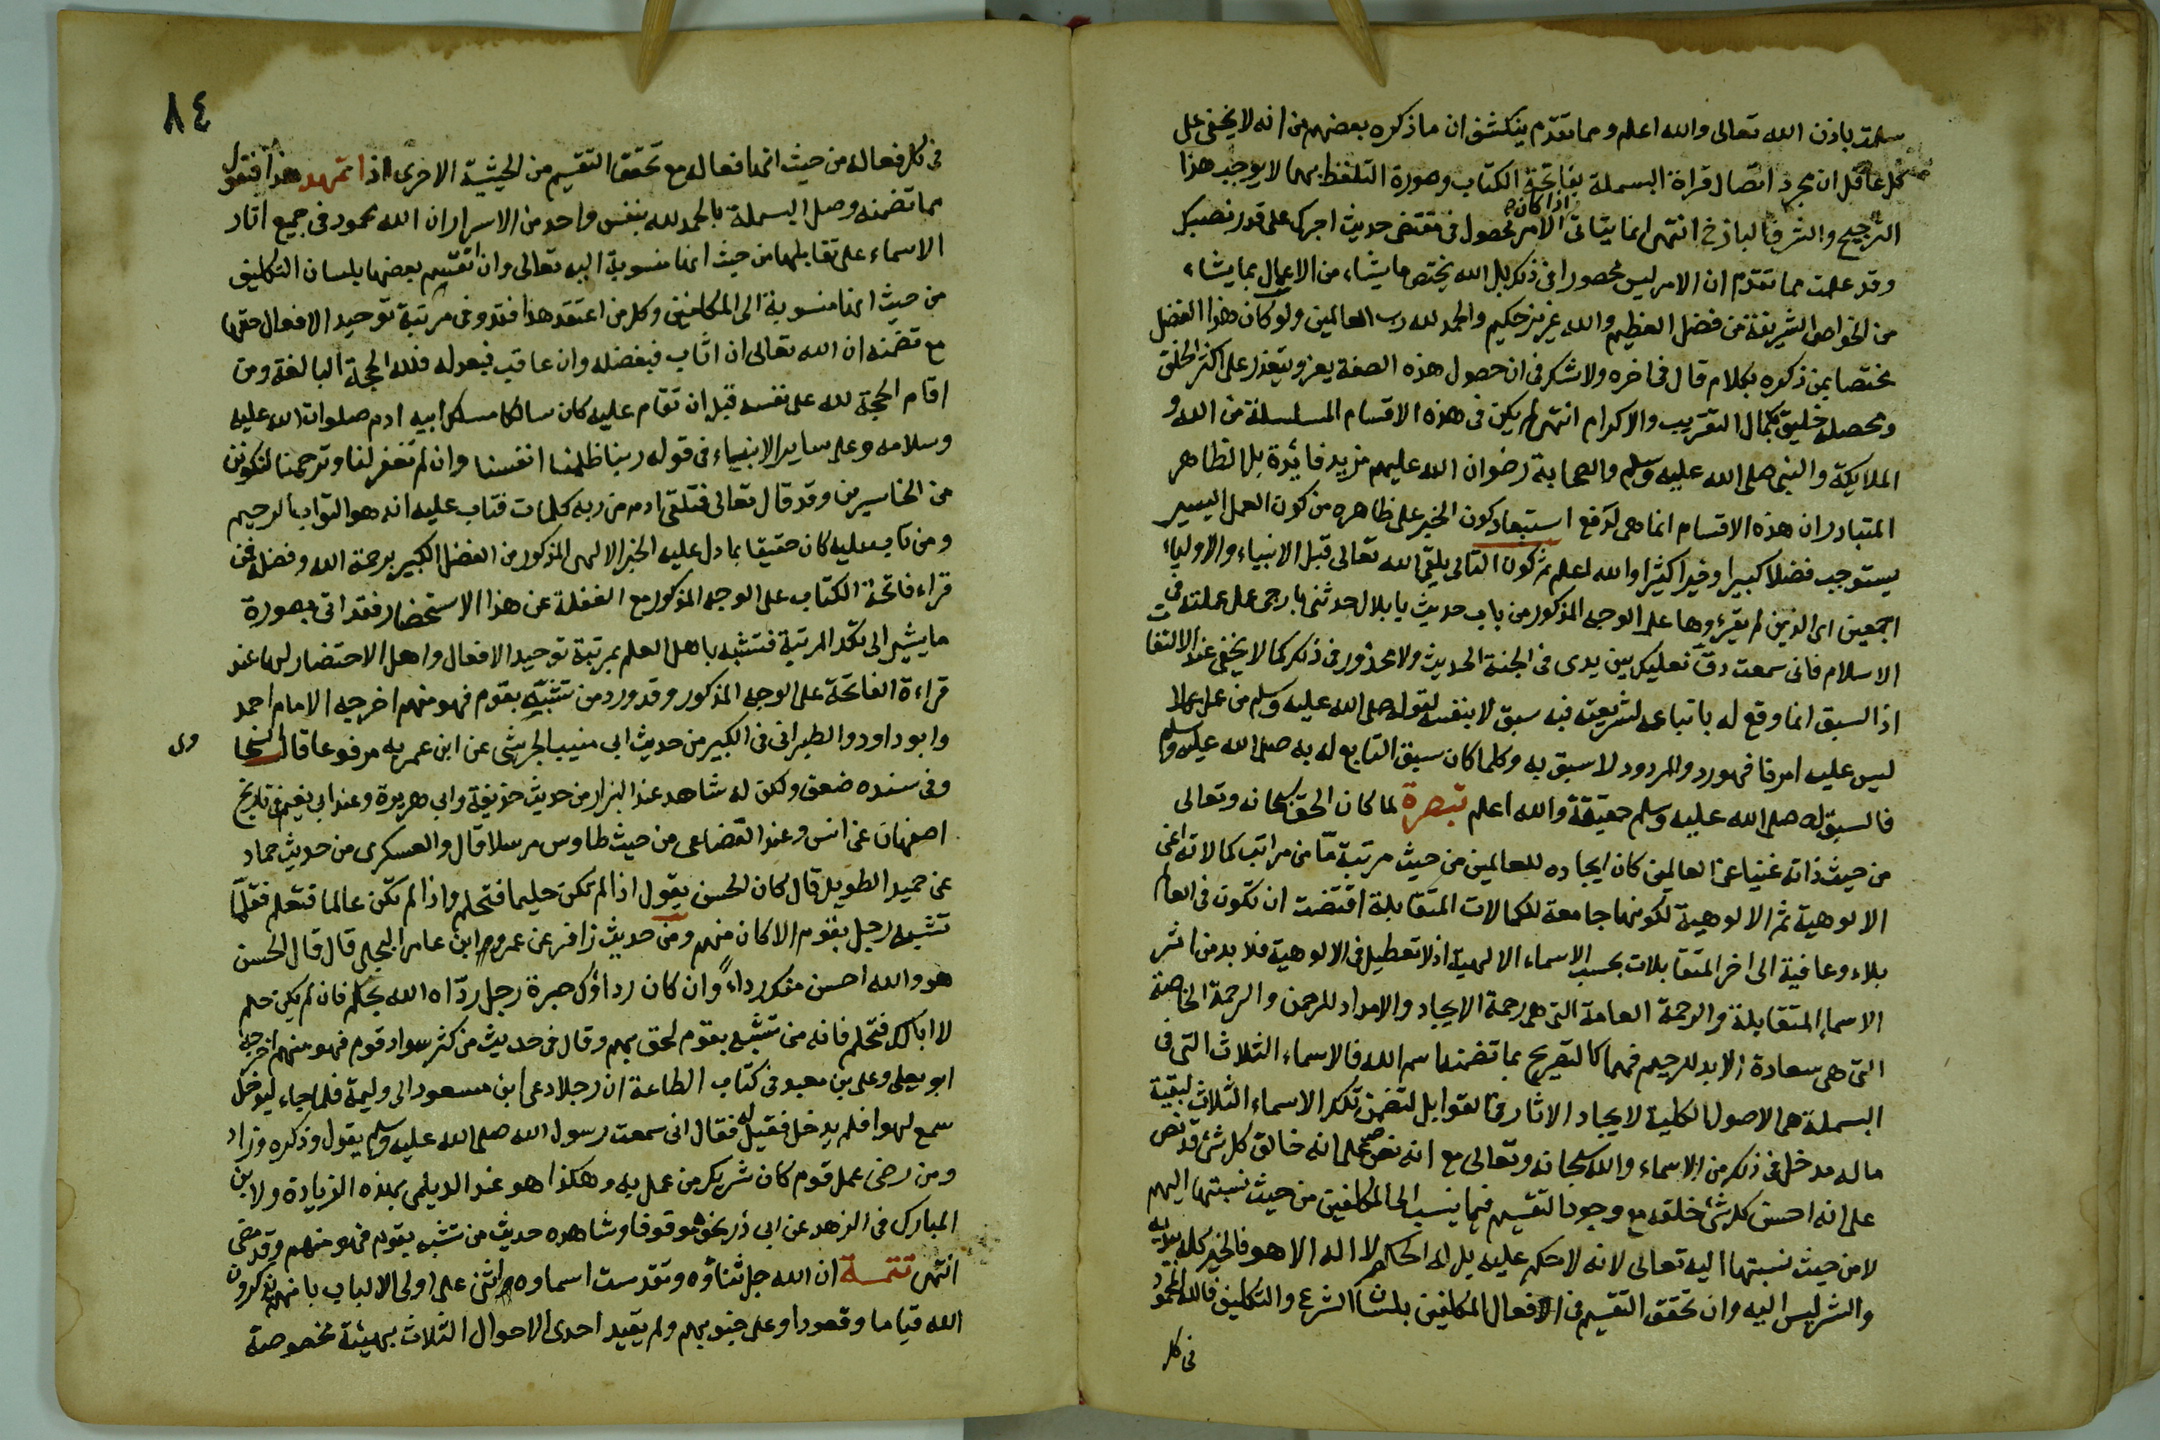 سلمته باذن الله تعالى والله اعلم ومما تقدم ينكشف ان ما ذكره بعضهم من انه لا يخفى على
كل عاقل ان مجرد اتصال قراة البسملة بفاتحة الكتاب وصورة التلفظ بهما لا يوجب هذا
اذا كان
الترجيح والشرف الباذخ انتهى انما يتاتى الامر محصول في مقتضى حديث اجرك على قدر نصبك
وقد علمت مما تقدم ان الامر ليس محصورا في ذلك بل الله يختص ما يشاء من الاعمال بما يشاء
من الخواص الشريفة من فضل العظيم والله عزيز حكيم والحمد لله رب العالمين ولو كان هذا الفضل
مختصا بمن ذكره بكلام قال في اخره ولا شك في ان حصول هذه الصفة يعز ويتعذر على اكثر الخلق
ومحصله خليق بكمال التقريب والاكرام انتهى لم يكن في هذه الاقسام المسلسلة من الله و
الملايكة والنبي صلى الله عليه وسلم والصحابة رضوان الله عليهم مزيد فائدة بل الظاهر
المتبادر ان هذه الاقسام انما هي لدفع استبعاد كون الخبر على ظاهره من كون العمل اليسير
يستوجب فضلا كبيرا وخيرا كثيرا والله اعلم ثم كون التالي يلقى الله تعالى قبل الانبياء والاولياء
اجمعين اى الذين لم يقرؤها على الوجه المذكور من باب حديث يا بلال حدثني بارجى عمل عملته في
الاسلام فانى سمعت دق نعليك بين يدى في الجنة الحديث ولا محذور في ذلك كما لا يخفى عند الالتفات
اذ السبق انما وقع له باتباعه لشريعته فبه سبق لا بنفسه لقوله صلى الله عليه وسلم من عمل عملا
ليس عليه امرنا فهو رد والمردود لا سبق به وكلما كان سبق التابع له به صلى الله عليه وسلم
فالسبق له صلى الله عليه وسلم حقيقة والله اعلم تبصرة لما كان الحق سبحانه وتعالى
من حيث ذاته غنيا عن العالمين كان ايجاده للعالمين من حيث مرتبة ما من مراتب كمالاته اعنى
الالوهية ثم الالوهية لكونها جامعة للكمالات المتقابلة اقتضت ان تكون في العالم
بلاء وعافية الى اخر المتقابلات بحسب الاسماء الالهية اذ لا تعطيل في الالوهية فلا بد من اثر
الاسماء المتقابلة والرحمة العامة التي هي رحمة الايجاد والامداد للرحمن والرحمة الخاصة
التي هي سعادة الابد للرحيم فهما كالتصريح بما تضمنه اسم الله فالاسماء الثلاث التي في
البسملة هي الاصول الكلية لايجاد الاثار في القوابل لتضمن تلك الاسماء الثلاث لبقية
ما له مدخل في ذلك من الاسماء والله سبحانه وتعالى مع انه نص على انه خالق كل شئ قد نص
على انه احسن كل شئ خلقه مع وجود التقسيم فيما ينسب الى المكلفين من حيث نسبتها اليهم
لا من حيث نسبتها اليه تعالى لانه لا حكم عليه بل له الحكم لا اله الا هو فالخير كله بيديه
والشر ليس اليه وان تحقق التقسيم في افعال المكلفين بلسان الشرع والتكليف فالله المحمود
في كل
٨٤
في كل فعاله من حيث انها فعاله مع تحقق التقسيم من الحيثية الاخرى اذا تمهد هذا فنقول
مما تضمنه وصل البسملة بالحمد لله بنفس واحد من الاسرار ان الله محمود في جميع اثار
الاسماء على تقابلها من حيث انها منسوبة اليه تعالى وان تقسم بعضها بلسان التكليف
من حيث انها منسوبة الى المكلفين وكل من اعتقد هذا فقد وفى مرتبة توحيد الافعال حقها
مع تضمنه ان الله تعالى ان اثاب فبفضله وان عاقب فبعدله فلله الحجة البالغة ومن
اقام الحجة لله على نفسه قبل ان تقام عليه كان سالكا مسلك ابيه ادم صلوات الله عليه
وسلامه وعلى ساير الانبياء في قوله ربنا ظلمنا انفسنا وان لم تغفر لنا وترحمنا لنكونن
من الخاسرين وقد قال تعالى فتلقى ادم من ربه كلمات فتاب عليه انه هو التواب الرحيم
ومن تاب عليه كان حقيقا بما دل عليه الخبر الالهى المذكور من الفضل الكبير برحمة الله وفضله فمن
قراء فاتحة الكتاب على الوجه المذكور مع الغفلة عن هذا الاستحضار فقد اتى بصورة
ما يشير الى تلك المرتبة فتشبه باهل العلم بمرتبة توحيد الافعال واهل الاحتضار لها عند
قراءة الفاتحة على الوجه المذكور وقد ورد من تشبه بقوم فهو منهم اخرجه الامام احمد
وابو داود والطبرانى في الكبير من حديث ابى منيب الجرشى عن ابن عمر به مرفوعا قال السخا
وى
وفى سنده ضعف ولكن له شاهد عند البزار من حديث حذيفة وابى هريرة وعند ابى نعيم في تاريخ
اصفهان عن انس وعند القضاعى من حيث طاوس مرسلا قال والعسكرى من حديث حماد
عن حميد الطويل قال كان الحسن يقول اذا لم تكن حليما فتحلم واذا لم تكن عالما فتعلم فقلما
تشبه رجل بقوم الا كان منهم ومن حديث زافر عن عمرو ابن عامر البجلى قال قال الحسن
هو والله احسن منك رداء وان كان رداؤك حبرة رجل رداه الله بحلم فان لم يكن حلم
لا ابالك فتحلم فانه من تشبه بقوم لحق بهم وقال في حديث من كثر سواد قوم فهو منهم اخرجه
ابو يعلى وعلى بن معبد في كتاب الطاعة ان رجلا دعى ابن مسعود الى وليمة فلما جاء ليدخل
سمع لهوا فلم يدخل فقيل له فقال انى سمعت رسول الله صلى الله عليه وسلم يقول وذكره وزاد
ومن رضى عمل قوم كان شريك من عمل به وهكذا هو عند الديلمى بهذه الزيادة ولابن
المبارك في الزهد عن ابى ذر نحوه موقوفا وشاهده حديث من تشبه بقوم فهو منهم وقد مضى
انتهى تتمة ان الله جل ثناؤه وتقدست اسماوه اثنى على اولى الالباب بانهم يذكرون
الله قياما وقعودا وعلى جنوبهم ولم يقيد احدى الاحوال الثلاث بهيئة مخصوصة